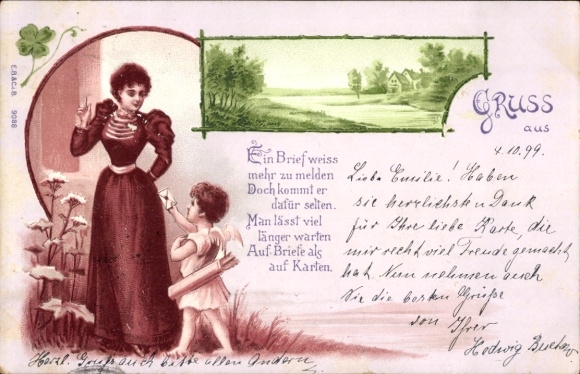 E.B.&C.i.B. 9086
GRUSS
aus
4.10.99.
Ein Brief weiss
mehr zu melden
Doch kommt er
dafür selten.
Man lässt viel
länger warten
Auf Briefe als
auf Karten.
Liebe Emilie! Haben
sie herzlichsten Dank
für Ihre liebe Karte, die
mir recht viel Freude gemacht
hat. Nun nehmen auch
Sie die besten Grüße
von Ihrer
Hedwig
Herzl. Gruß auch bitte allen Andern